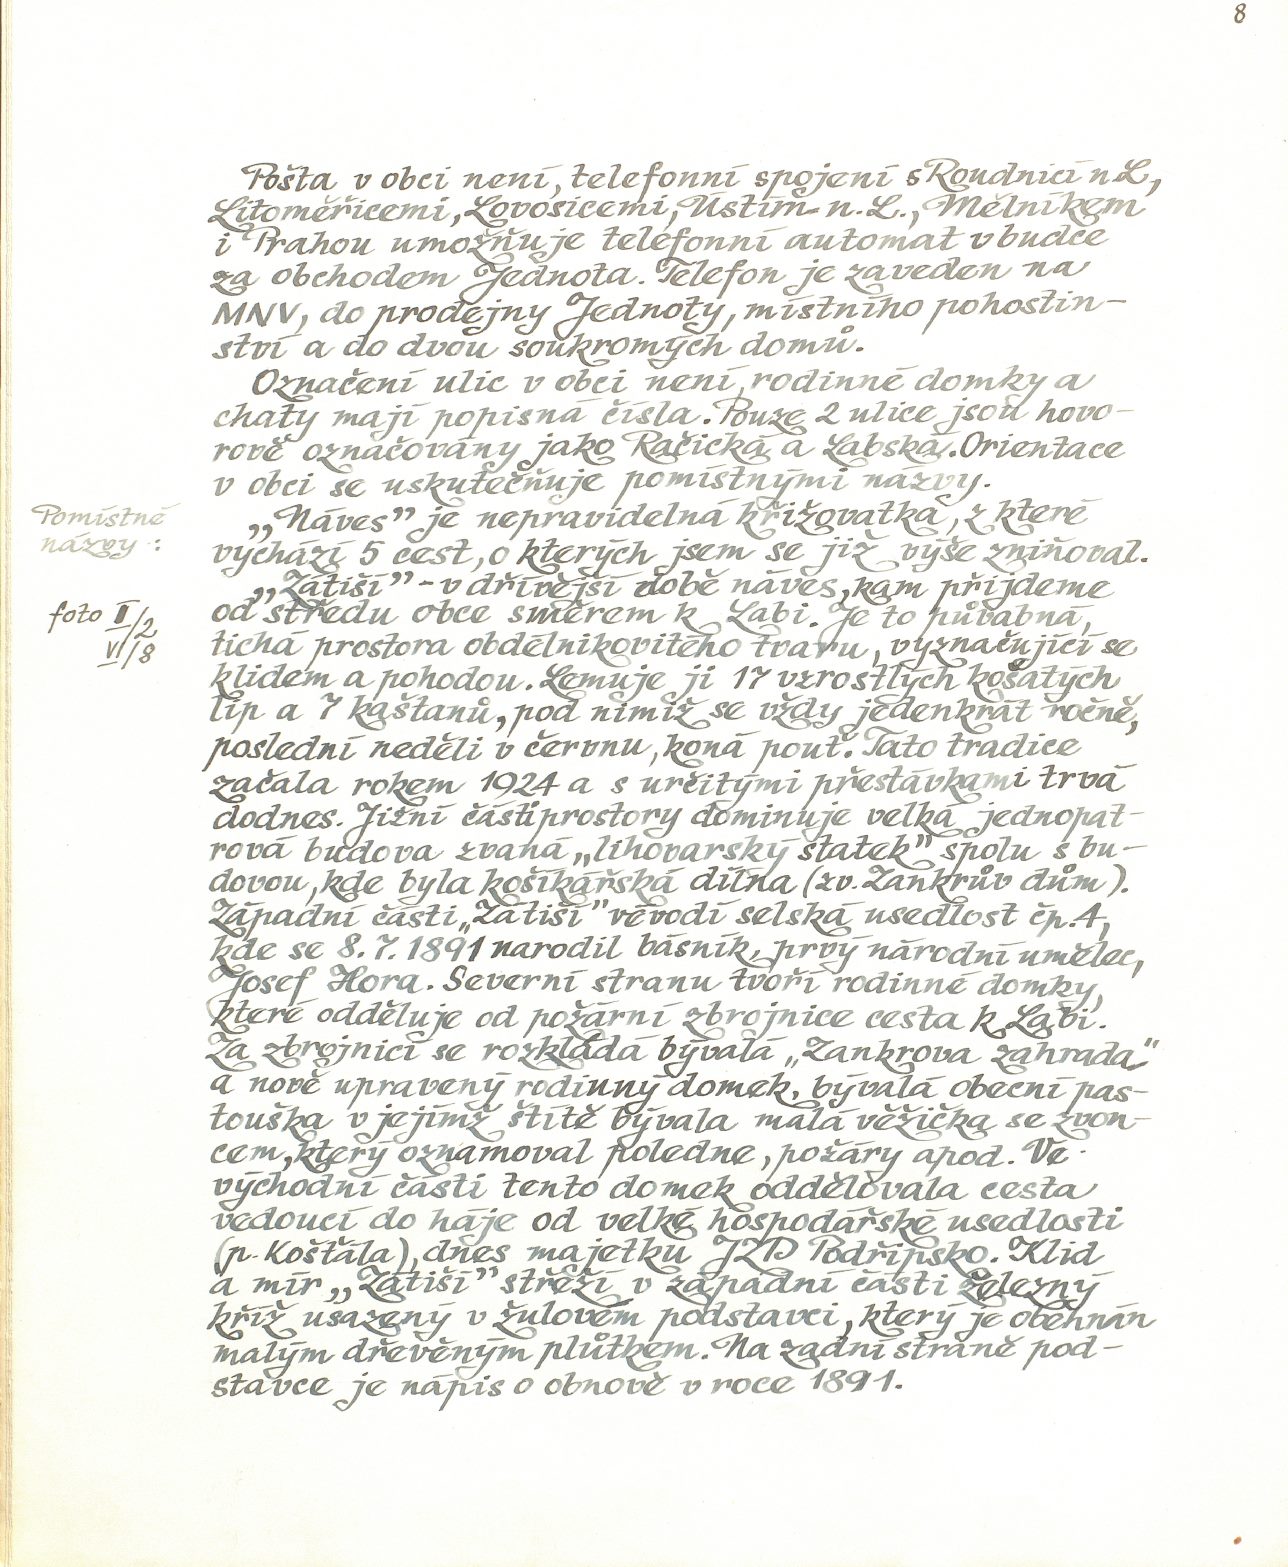 8
Pošta v obci není, telefonní spojení s Roudnicí n.L,
Litoměřicemi, Lovosicemi, Ústím n. L., Mělníkem
i Prahou umožňuje telefonní automat v budce
za obchodem Jednota. Telefon je zaveden na
MNV, do prodejny Jednoty, místního pohostin-
ství a do dvou soukromých domů.
Označení ulic v obci není, rodinné domky a
chaty mají popisná čísla. Pouze 2 ulice jsou hovo-
rově označovány jako Račická a Labská. Orientace
v obci se uskutečňuje pomístnými názvy.
Pomístné
názvy :
„Náves" je nepravidelná křižovatka, z které
vychází 5 cest, o kterých jsem se již výše zmiňoval.
„Zátiší" - v dřívější době náves, kam přijdeme
foto II/2
VI/8
od středu obce směrem k Labi. Je to půvabná,
tichá prostora obdélníkovitého tvaru, vyznačující se
klidem a pohodou. Lemuje ji 17 vzrostlých košatých
lip a 7 kaštanů, pod nimiž se vždy jedenkrát ročně,
poslední neděli v červnu, koná pouť. Tato tradice
začala rokem 1924 a s určitými přestávkami trvá
dodnes. Jižní části prostory dominuje velká jednopat-
rová budova zvaná „lihovarský statek" spolu s bu-
dovou, kde byla košíkářská dílna (zv. Zankrův dům).
Západní části „Zátiší" vévodí selská usedlost čp. 4,
kde se 8. 7. 1891 narodil básník, prvý národní umělec,
Josef Hora. Severní stranu tvoří rodinné domky,
které odděluje od požární zbrojnice cesta k Labi.
Za zbrojnicí se rozkládá bývalá „Zankrova zahrada"
a nově upravený rodinný domek, bývalá obecní pas-
touška v jejímž štítě bývala malá věžička se zvon-
cem, který oznamoval poledne, požáry apod. Ve
východní části tento domek oddělovala cesta
vedoucí do háje od velké hospodářské usedlosti
(p. Košťála), dnes majetku JZD Podřipsko. Klid
a mír „Zátiší" střeží v západní části železný
kříž usazený v žulovém podstavci, který je obehnán
malým dřevěným plůtkem. Na zadní straně pod-
stavce je nápis o obnově v roce 1891.